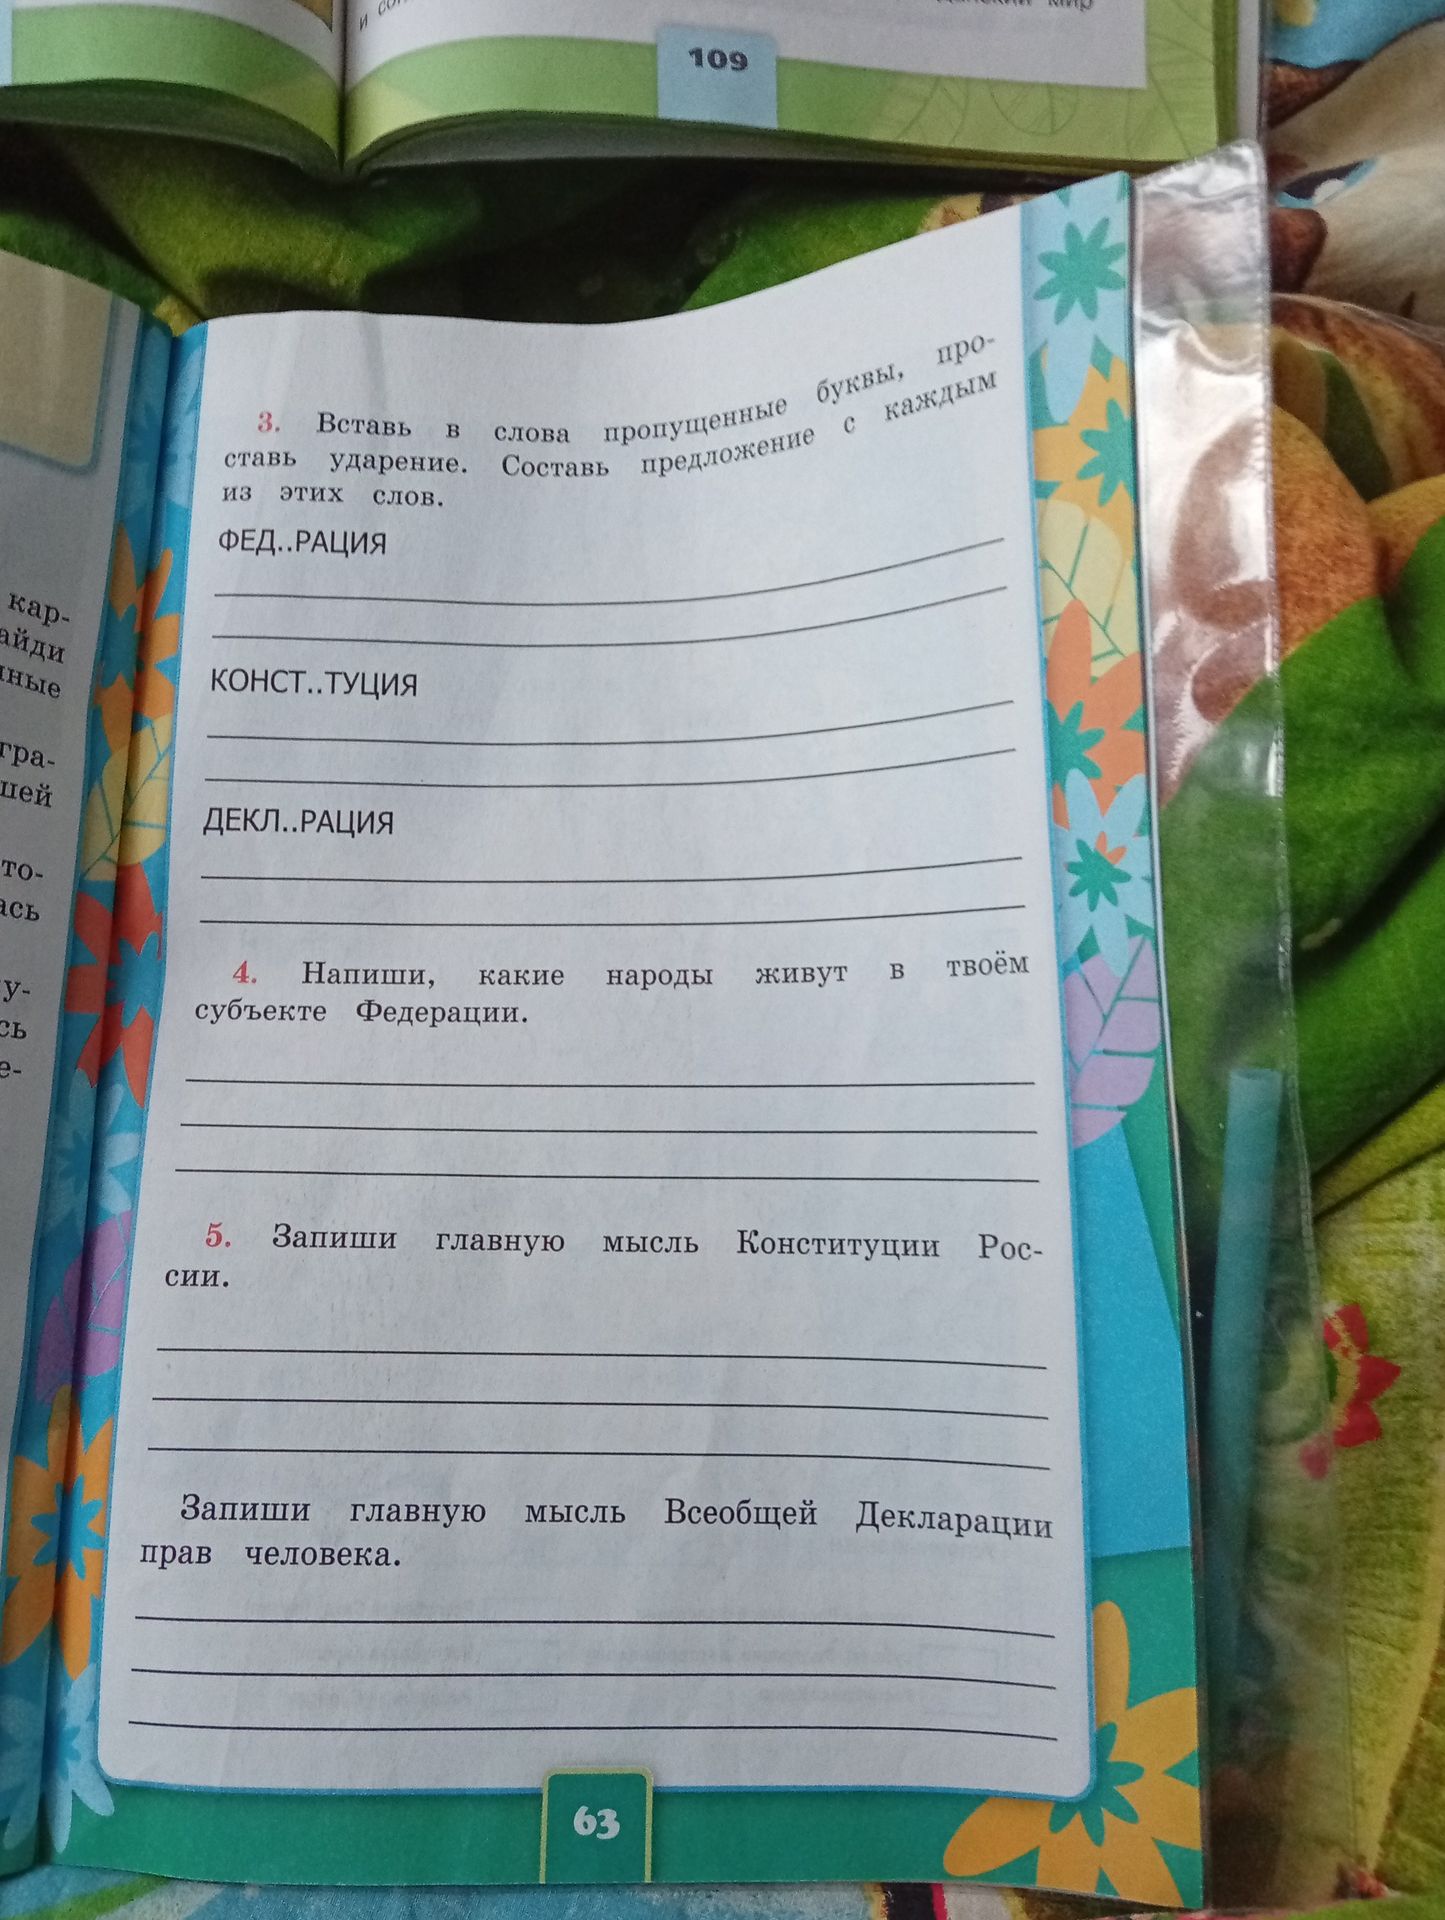 109
3. Вставь в слова пропущенные буквы, про-
ставь ударение. Составь предложение с каждым
из этих слов.
ФЕД..РАЦИЯ
КОНСТ..ТУЦИЯ
ДЕКЛ..РАЦИЯ
4. Напиши, какие народы живут в твоём
субъекте Федерации.
5. Запиши главную мысль Конституции Рос-
сии.
Запиши главную мысль Всеобщей Декларации
прав человека.
63
кар-
айди
ные
гра-
шей
то-
ась
у-
сь
е-